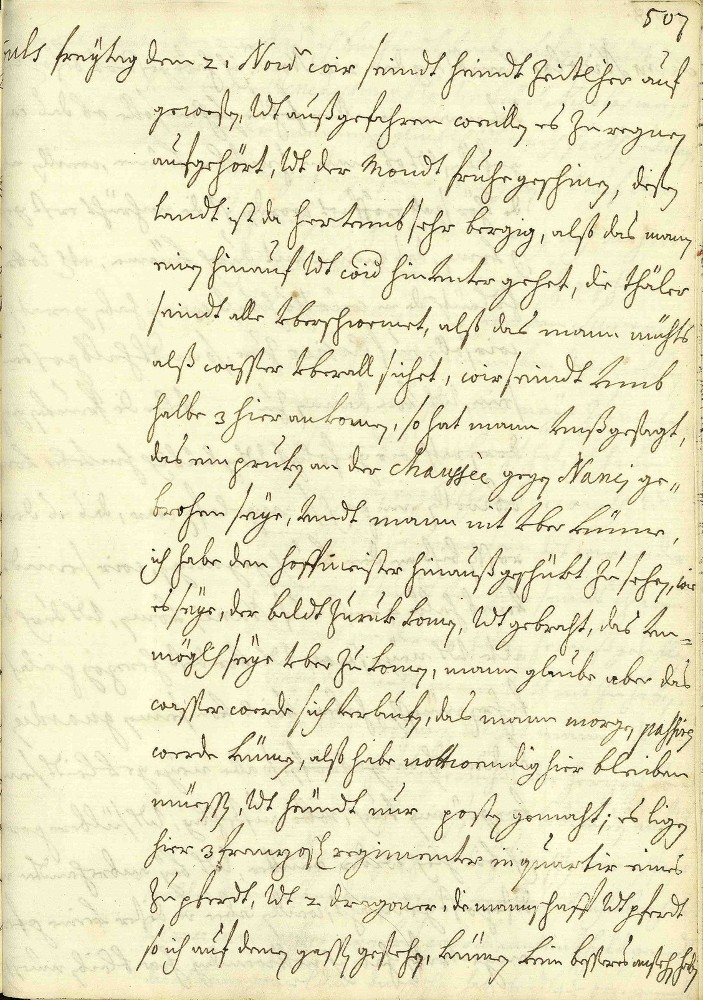 507
freÿtag dem 2. Nov: wir seindt heindt Zeitlher auf
geweßen, Vdt außgefahren weillen es Zu regnen
aufgehört, Vdt der Mondt fruhe geschinen, dißes
landt ist da herVmb sehr bergig, alß das mann
einen hinauf Vdt wid hinVnter gehet, die thäler
seindt alle Vberschwemet, alß das mann nichts
alß wasßer Vberall sichet, wir seindt Vmb
halbe 3 hier ankomen, so hat mann Vnß gesagt,
das ein pruken an der Chaussèe gegen Nanci ge„
brohen seÿe, Vndt mann nit Vber künne,
ich habe den hoffmeister hinaußgeschükt Zu sehen, wie
es seÿe, der baldt Zuruk komen, Vdt gebracht, das Vn=
möglch seÿe Vber Zu komen, mann glaube aber das
wasßer werde sich Verlaufen, das mann morgen passiren
werde künen, alß habe nottwendig hier bleiben
müessen, Vdt heündt nur posten gemacht; es ligen
hier 3 französ: regimenter in quartir eines
Zu pferdt, Vdt 2 dragoner, die mannschafft Vdt pferdt
so ich auf denen gassen gesehen, künen kein besseres